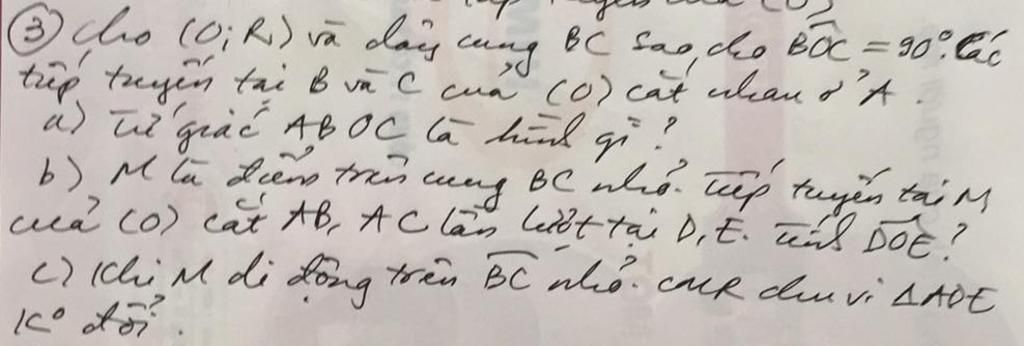 ③ Cho (O; R) và dây cung BC sao cho BOC = 90°. Các
tiếp tuyến tại B và C của (O) cắt nhau ở A.
a) Tứ giác ABOC là hình gì?
b) M là điểm trên cung BC nhỏ. Tiếp tuyến tại M
của (O) cắt AB, AC lần lượt tại D, E. Tính DOE?
c) Khi M di động trên BC nhỏ. CMR chu vi ΔADE
K° đổi.